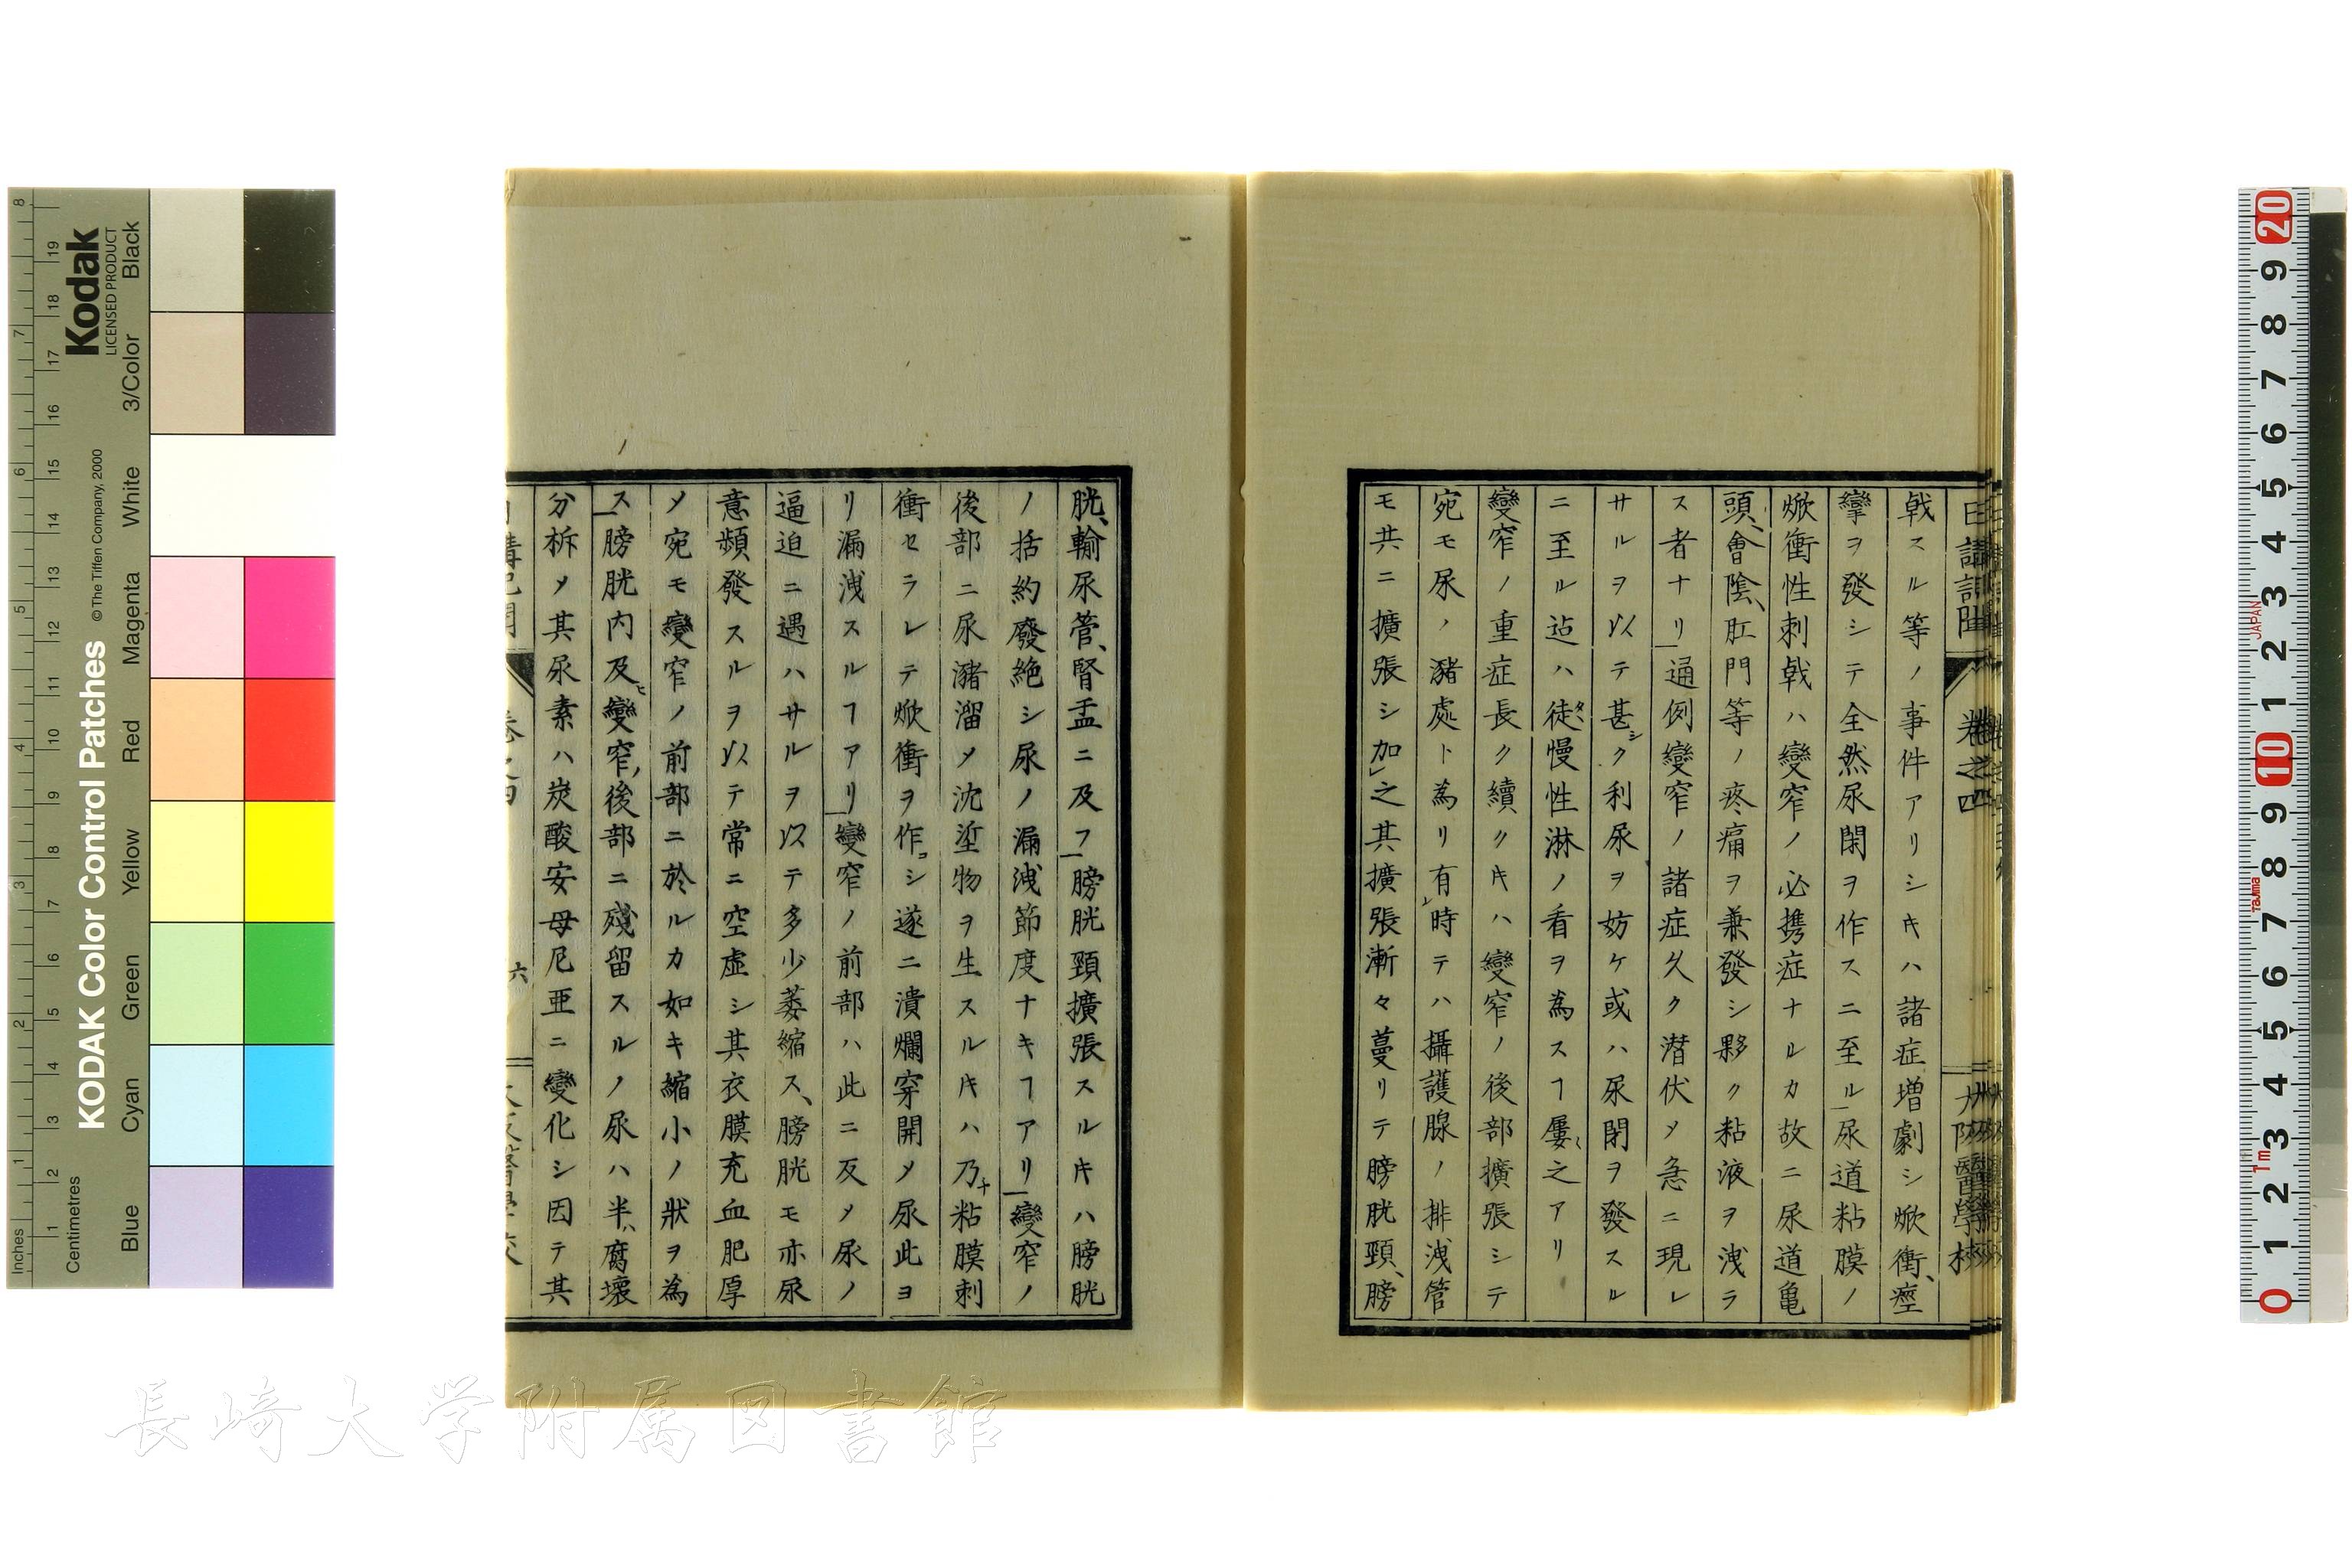 日講記聞 卷之四 大阪醫學校
戟スル等ノ事件アリシキハ諸症増劇シ焮衝、痙
攣ヲ發シテ全然尿閉ヲ作スニ至ル尿道粘膜ノ
焮衝性刺戟ハ變窄ノ必携症ナルカ故ニ尿道亀
頭、會陰、肛門等ノ疼痛ヲ兼發シ夥ク粘液ヲ洩ラ
ス者ナリ通例變窄ノ諸症久ク潜伏メ急ニ現レ
サルヲ以テ甚シク利尿ヲ妨ケ或ハ尿閉ヲ發スル
ニ至ル迠ハ徒タヽ慢性淋ノ看ヲ為スヿ屢〻之アリ
變窄ノ重症長ク續クキハ變窄ノ後部擴張シテ
宛モ尿ノ瀦處ト為リ有レ時テハ攝護腺ノ排洩管
モ共ニ擴張シ加レ之其擴張漸々蔓リテ膀胱頸、膀
胱、輸尿管、腎盂ニ及フ膀胱頸擴張スルキハ膀胱
ノ括約廢絶シ尿ノ漏洩節度ナキヿアリ變窄ノ
後部ニ尿瀦溜メ沈坔物ヲ生スルキハ乃チ粘膜刺
衝セラレテ焮衝ヲ作コシ遂ニ潰爛穿開メ尿此ヨ
リ漏洩スルヿアリ變窄ノ前部ハ此ニ反メ尿ノ
逼迫ニ遇ハサルヲ以テ多少萎縮ス、膀胱モ亦尿
意頻發スルヲ以テ常ニ空虚シ其衣膜充血肥厚
メ宛モ變窄ノ前部ニ於ルカ如キ縮小ノ狀ヲ為
ス膀胱内及ヒ變窄後部ニ殘留スルノ尿ハ半ハ腐壞
分柝メ其尿素ハ炭酸安母尼亜ニ變化シ因テ其
卷之四 六
8 19 18 7 17 16 6 15 14 5 13 12 11 4 10 9 3 8 7 6 2 5 4 1 3 2 1
Inches
Centimetres
Kodak
LICENSED PRODUCT
KODAK Color Control Patches
© The Tiffen Company, 2000
Blue Cyan Green Yellow Red Magenta White 3/Color Black
20 9 8 7 6 5 4 3 2 1 10 9 8 7 6 5 4 3 2 1 0
JAPAN
TaJIma
1m
長崎大学附属図書館